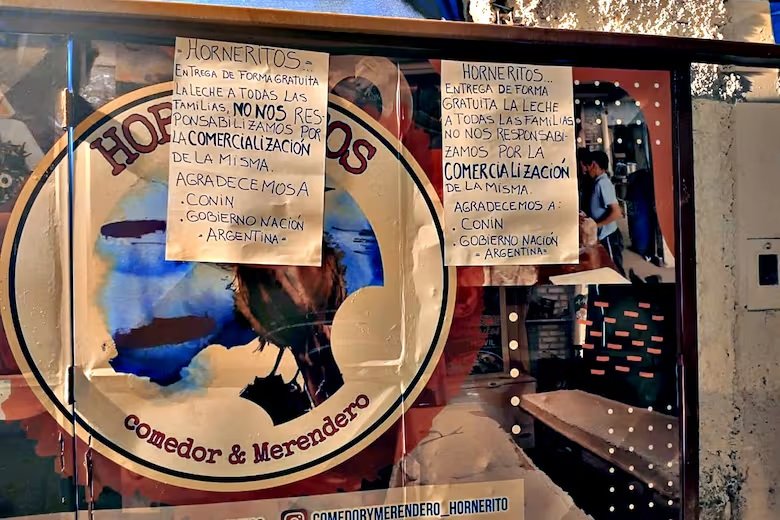 - HORNERITOS.-
ENTREGA DE FORMA GRATUITA
LA LECHE A TODAS LAS
FAMILIAS, NO NOS RES-
PONSABILIZAMOS POR
LA COMERCIALIZACIÓN
DE LA MISMA.
AGRADECEMOS A
. CONIN
. GOBIERNO NACIÓN
- ARGENTINA -
HORNERITOS...
ENTREGA DE FORMA
GRATUITA LA LECHE
A TODAS LAS FAMILIAS
NO NOS RESPONSABI-
ZAMOS POR LA
COMERCIALIZACIÓN
DE LA MISMA.
AGRADECEMOS A:
. CONIN
. GOBIERNO NACIÓN
- ARGENTINA -
comedor & Merendero
COMEDORYMERENDERO_HORNERITO